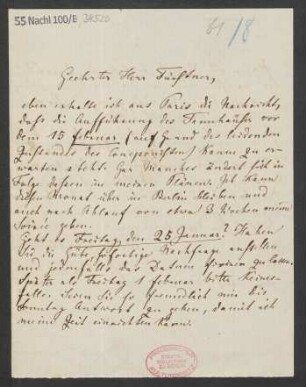 55 Nachl 100/B
61/8
Geehrter Herr Fürstner,
eben erhalte ich aus Paris die Nachricht,
daß die Aufführung des Tannhäuser vor
dem 15 februar (auf Grund des leidenden
Zustandes des Componisten) kaum zu er-
warten steht. Gar Manches ändert sich in
Folge dessen in meinen Plänen. Ich kann
diesen Monat über in Berlin bleiben und
auch nach Ablauf von etwa 3 Wochen meine
Soirée geben.
Geht es Freitag, den 25 Januar? Haben
Sie die Güte, sofortige Nachfrage anstellen
und jedenfalls das Datum fixiren zu lassen.
Später als Freitag 1 februar bitte keines-
falls. Seien Sie so freundlich mir bis
Sonntag Antwort zu geben, damit ich
meine Zeit einrichten kann.